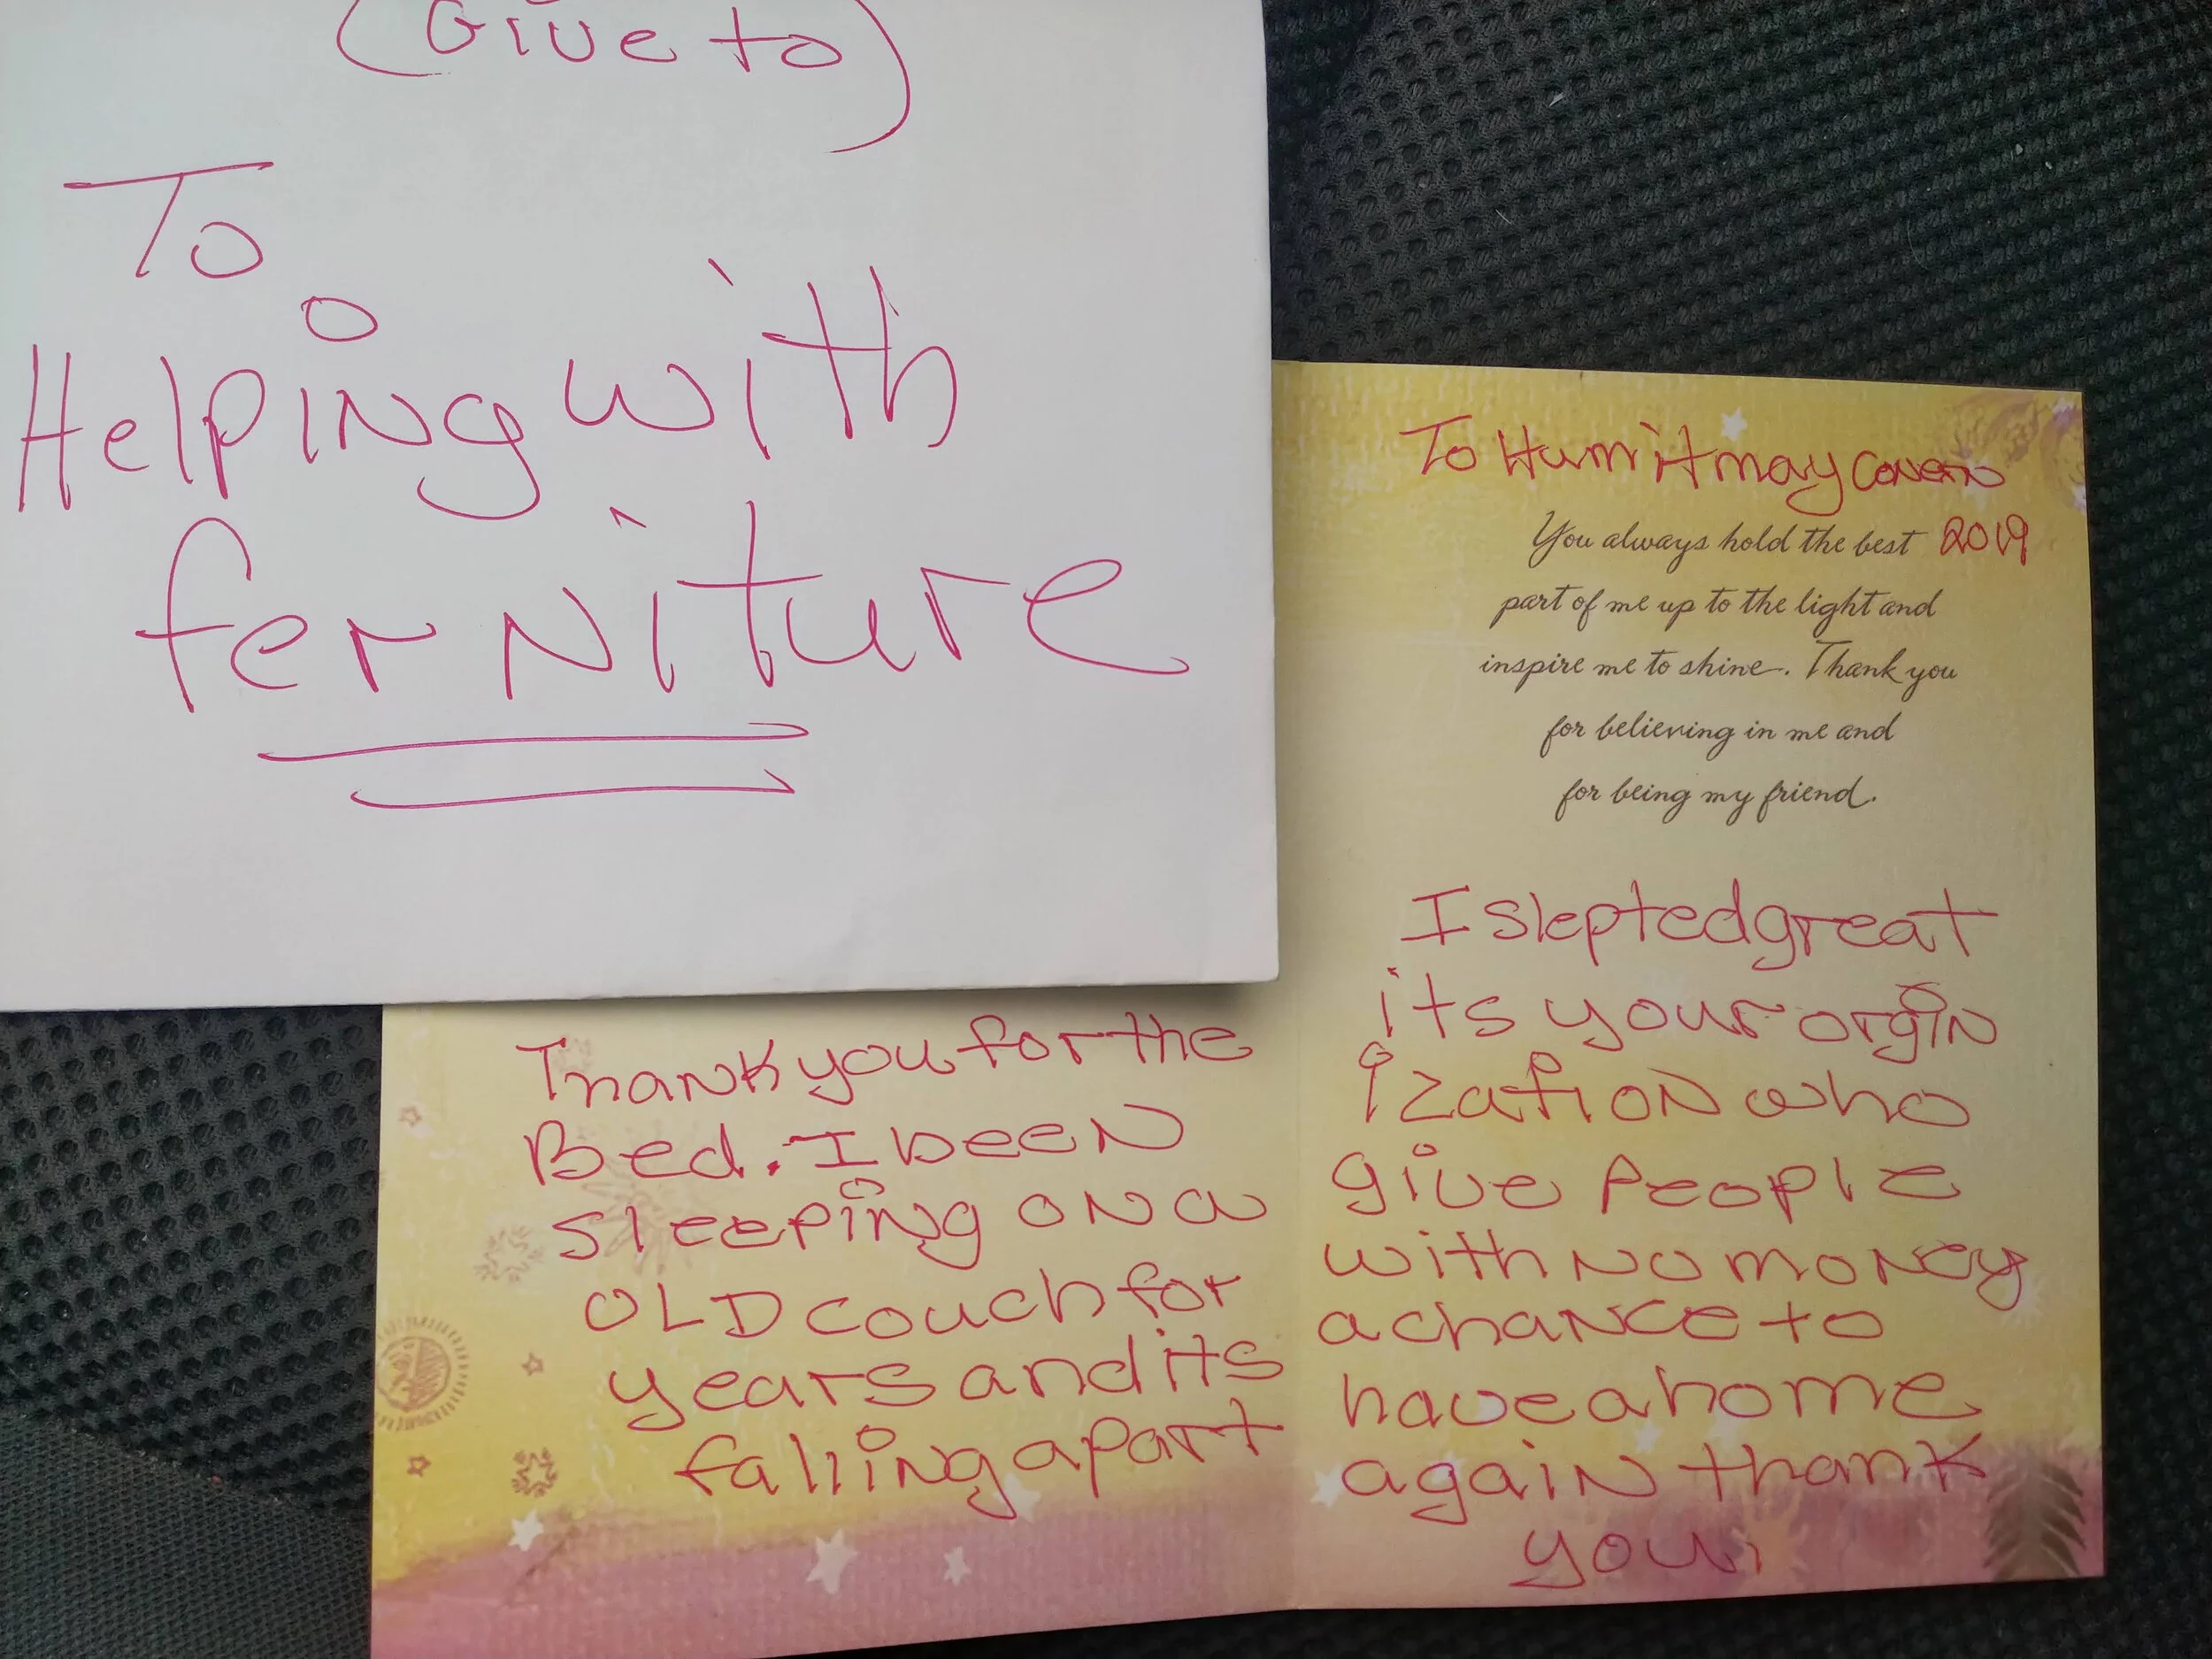 (Give to)
To
Helping with
ferniture
To Hum it may Conern
You always hold the best 2019
part of me up to the light and
inspire me to shine. Thank you
for believing in me and
for being my friend.
Thank you for the
Bed. I been
sleeping on a
OLD couch for
years and its
falling apart
I slepted great
its your orgin
ization who
give People
with no money
a chance to
have a home
again thank
you.